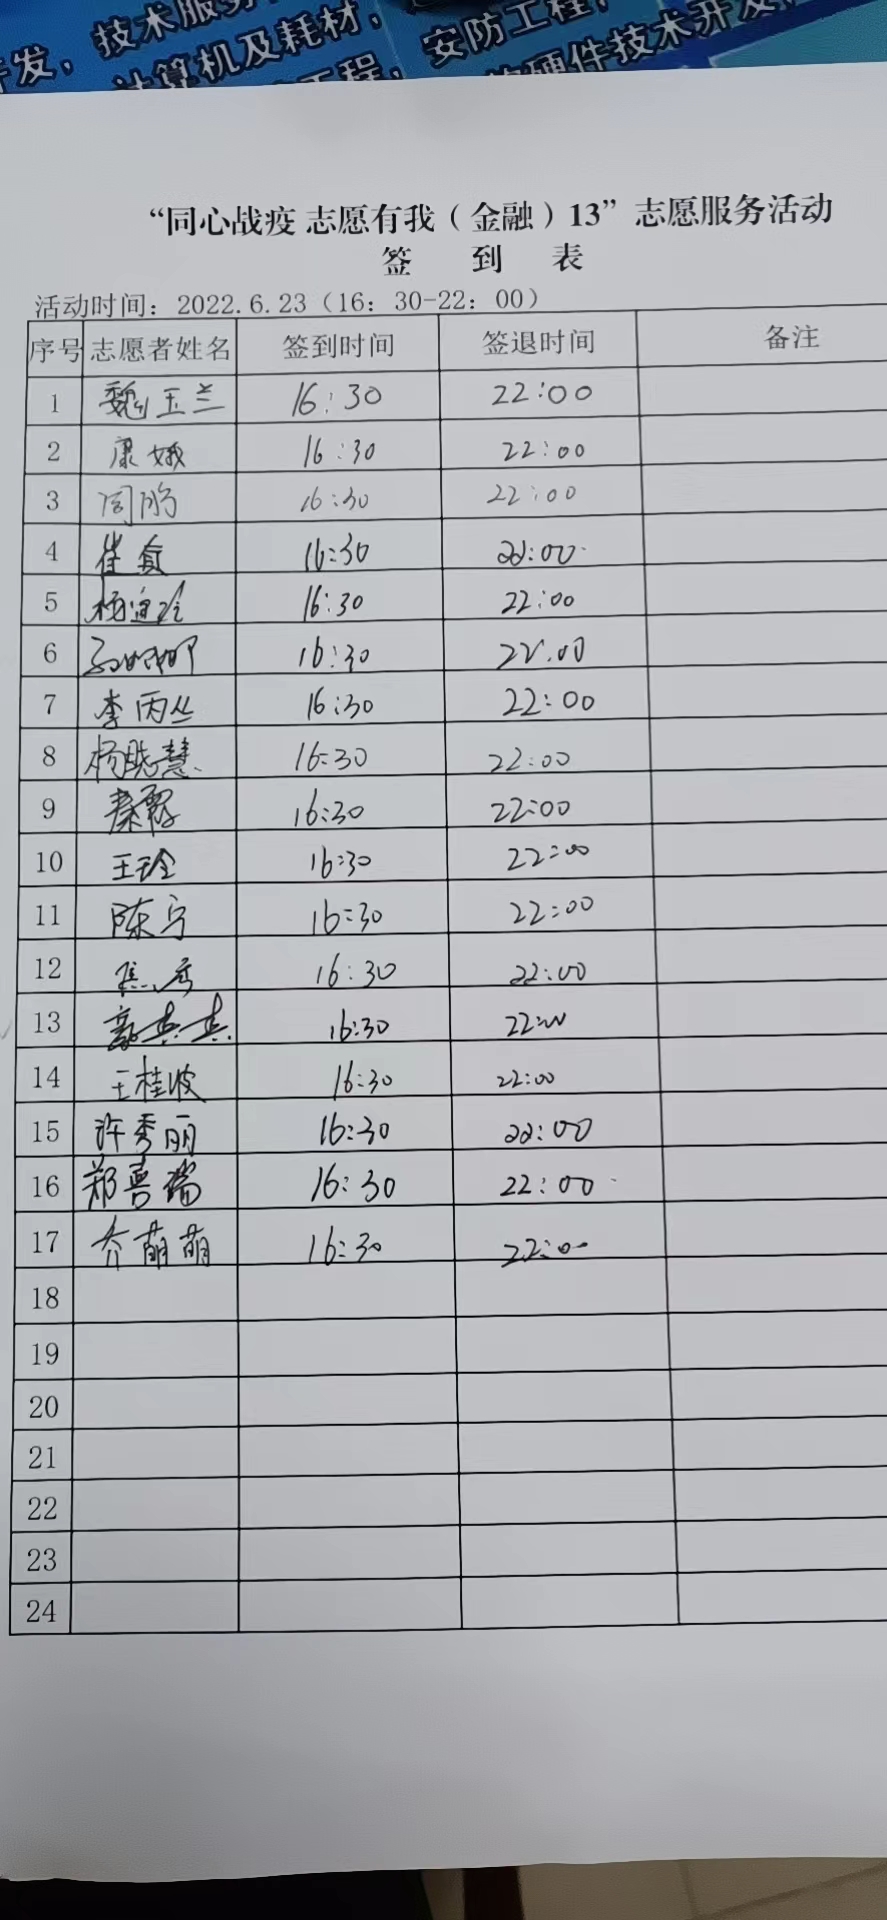 开发，技术服务
计算机及耗材，
工程，安防工程，
软硬件技术开发，
“同心战疫 志愿有我（金融）13”志愿服务活动
签 到 表
活动时间：2022.6.23（16：30-22：00）
序号 志愿者姓名 签到时间 签退时间 备注
1 魏玉兰 16:30 22:00
2 康娥 16:30 22:00
3 周鹏 16:30 22:00
4 崔 16:30 22:00
5 杨 16:30 22:00
6 16:30 22:00
7 李丙丛 16:30 22:00
8 杨晓慧 16:30 22:00
9 秦霞 16:30 22:00
10 王玲 16:30 22:00
11 陈宁 16:30 22:00
12 焦 16:30 22:00
13 16:30 22:00
14 王桂波 16:30 22:00
15 许秀丽 16:30 22:00
16 郑善瑞 16:30 22:00
17 乔萌萌 16:30 22:00
18
19
20
21
22
23
24